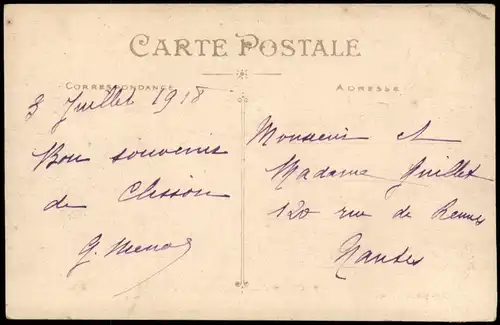 CARTE POSTALE
CORRESPONDANCE
ADRESSE
3 Juillet 1918
Bon souvenir
de Clisson
Monsieur et
Madame Guillet
120 rue de Rennes
Nantes